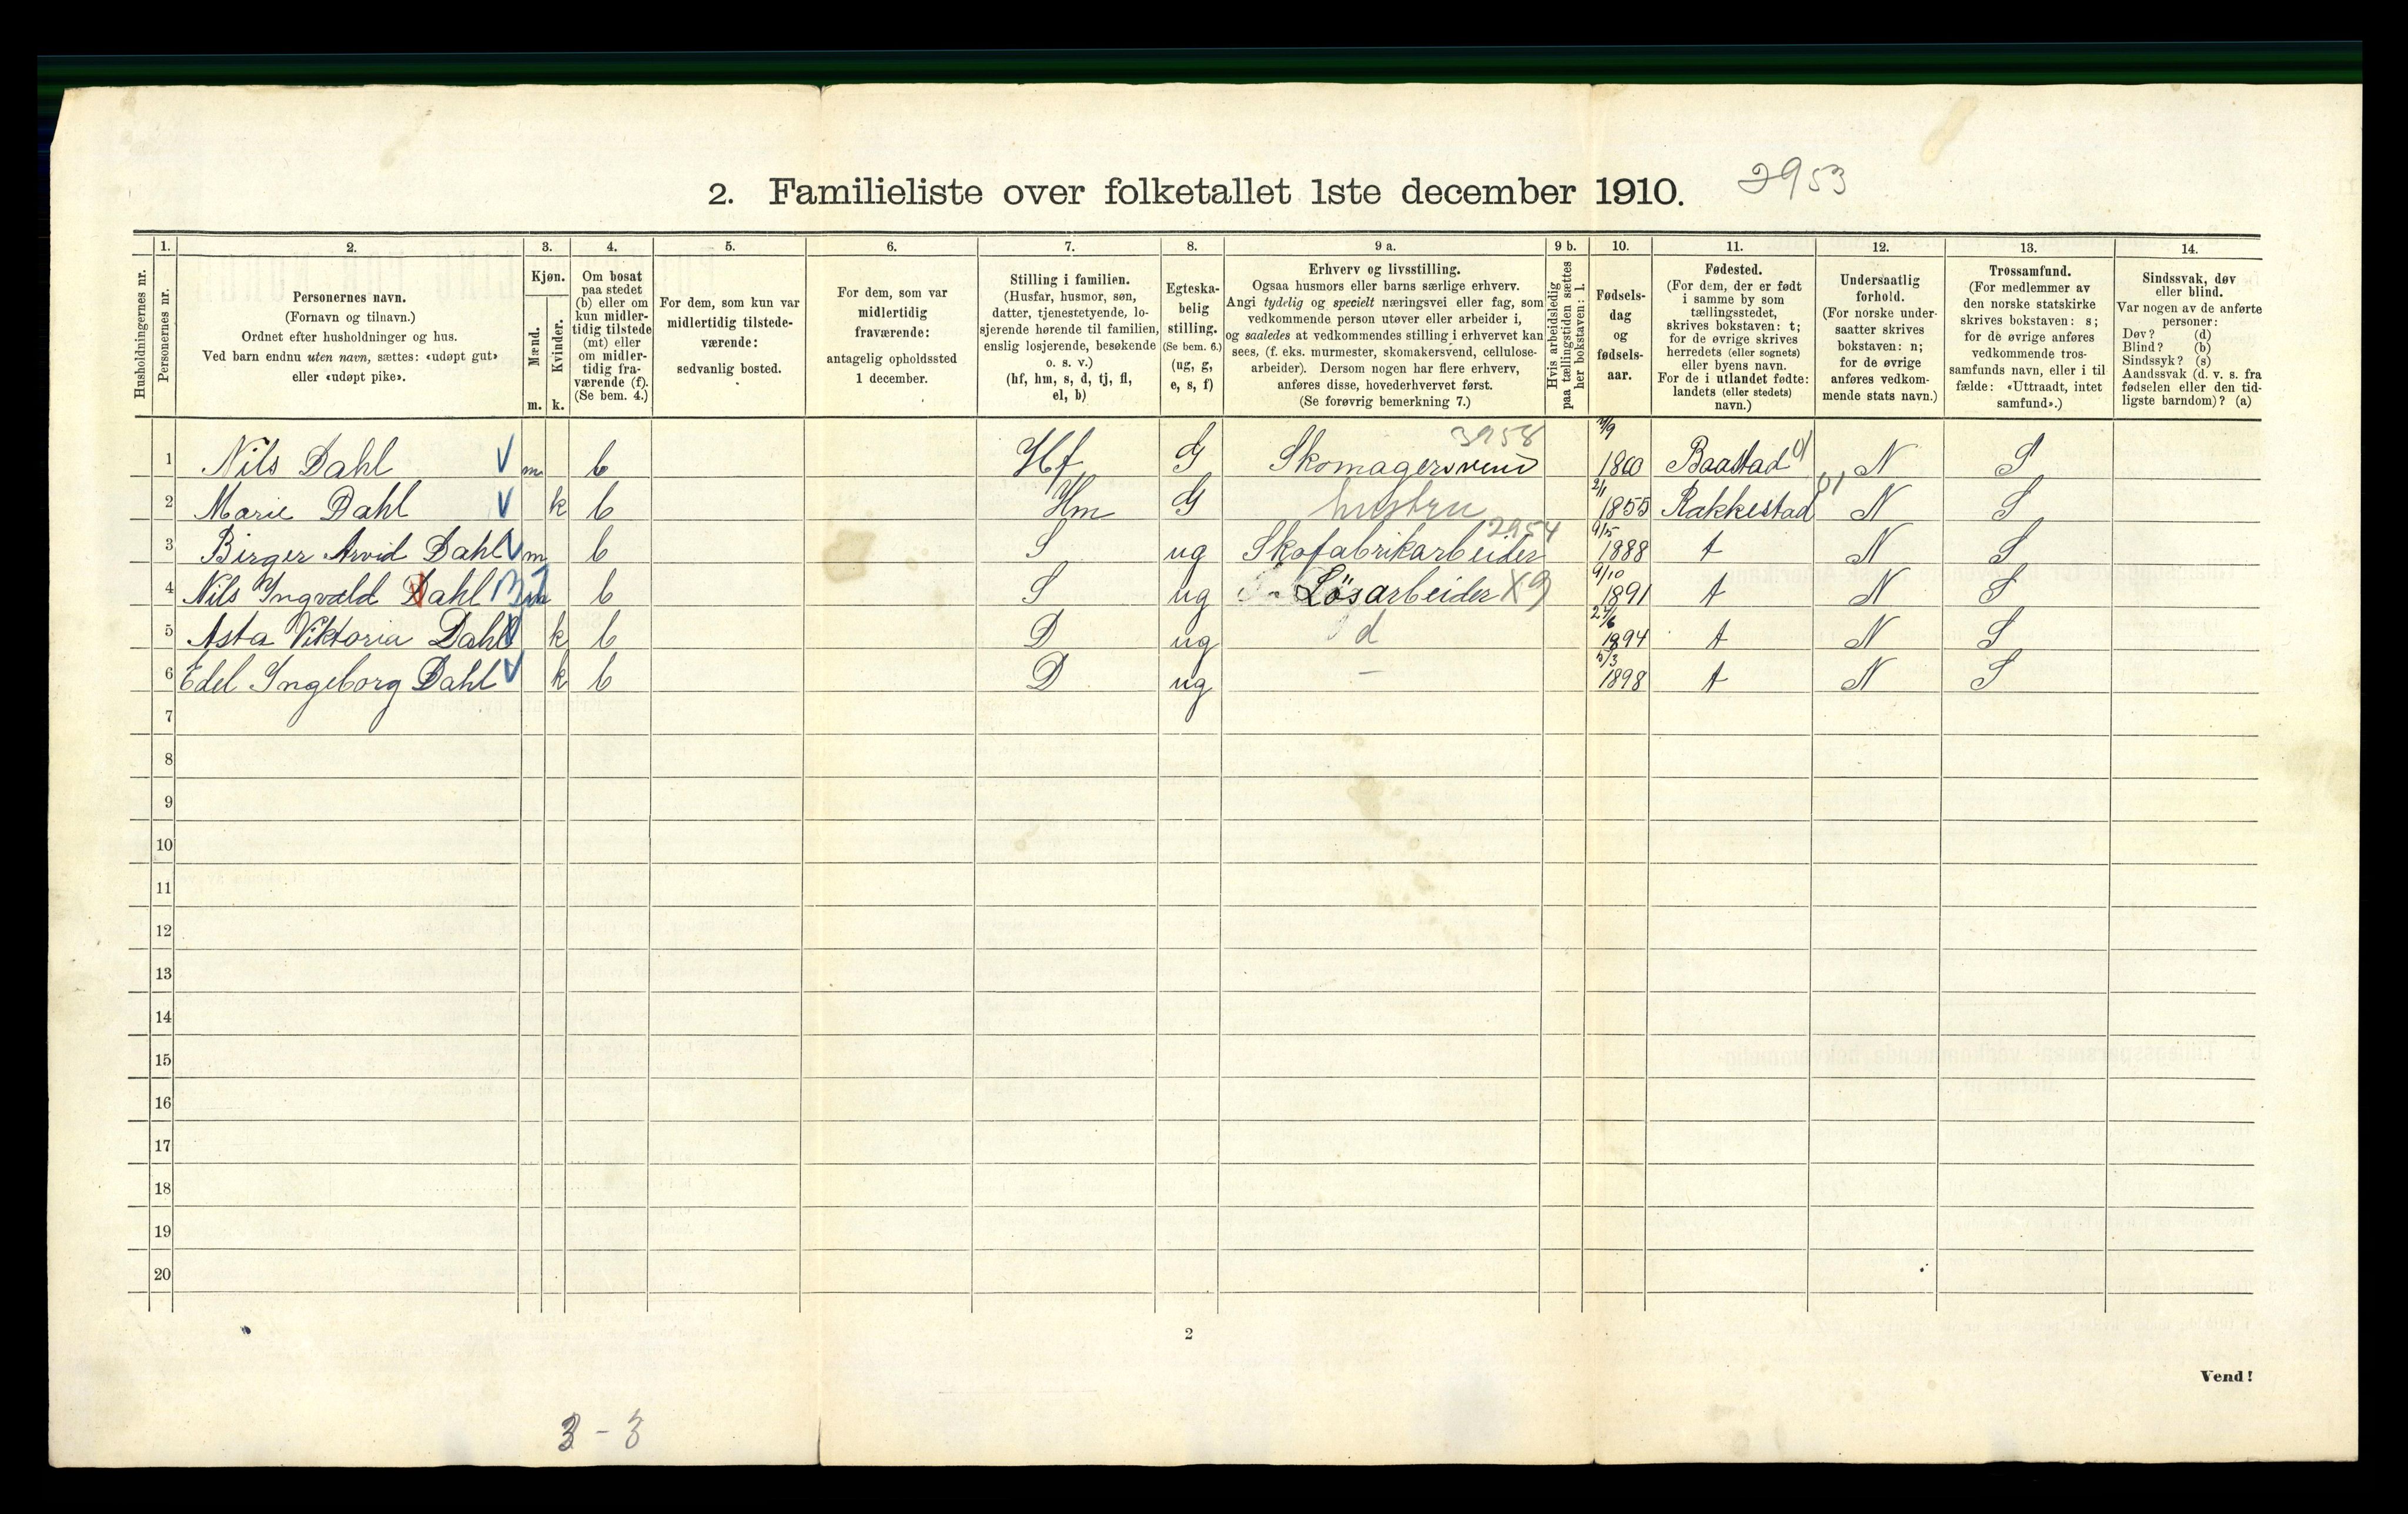 2. Familieliste over folketallet 1ste december 1910. 2953
Husholdningernes nr.
1. Personernes nr.
2. Personernes navn. (Fornavn og tilnavn.) Ordnet efter husholdninger og hus. Ved barn endnu uten navn, sættes: «udøpt gut» eller «udøpt pike».
3. Kjøn. Mænd. m. Kvinder. k.
4. Om bosat paa stedet (b) eller om kun midler-tidig tilstede (mt) eller om midler-tidig fra-værende (f). (Se bem. 4.)
5. For dem, som kun var midlertidig tilstede-værende: sedvanlig bosted.
6. For dem, som var midlertidig fraværende: antagelig opholdssted 1 december.
7. Stilling i familien. (Husfar, husmor, søn, datter, tjenestetyende, lo-sjerende hørende til familien, enslig losjerende, besøkende o. s. v.) (hf, hm, s, d, tj, fl, el, b)
8. Egteska-belig stilling. (Se bem. 6.) (ug, g, e, s, f)
9 a. Erhverv og livsstilling. Ogsaa husmors eller barns særlige erhverv. Angi tydelig og specielt næringsvei eller fag, som vedkommende person utøver eller arbeider i, og saaledes at vedkommendes stilling i erhvervet kan sees, (f. eks. murmester, skomakersvend, cellulose-arbeider). Dersom nogen har flere erhverv, anføres disse, hovederhvervet først. (Se forøvrig bemerkning 7.)
9 b. Hvis arbeidsledig paa tællingstiden sættes her bokstaven: l.
10. Fødsels-dag og fødsels-aar.
11. Fødested. (For dem, der er født i samme by som tællingsstedet, skrives bokstaven: t; for de øvrige skrives herredets (eller sognets) eller byens navn. For de i utlandet fødte: landets (eller stedets) navn.)
12. Undersaatlig forhold. (For norske under-saatter skrives bokstaven: n; for de øvrige anføres vedkom-mende stats navn.)
13. Trossamfund. (For medlemmer av den norske statskirke skrives bokstaven: s; for de øvrige anføres vedkommende tros-samfunds navn, eller i til fælde: «Uttraadt, intet samfund».)
14. Sindssvak, døv eller blind. Var nogen av de anførte personer: Døv? (d) Blind? (b) Sindssyk? (s) Aandssvak (d. v. s. fra fødselen eller den tid-ligste barndom)? (a)
3958
1 Nils Dahl V m b Hf G Skomagersvend 1860 Baastad N S
2 Marie Dahl V k b Hm G hustru 2/1 1855 Rakkestad 01 N S
2954
3 Birger Arvid Dahl V m b S ug Skofabrikarbeider 9/5 1888 t N S
4 Nils Ingvald Dahl m b S ug Løsarbeider X9 9/10 1891 t N S
5 Asta Viktoria Dahl V k b D ug d 1894 t N S
6 Edel Ingeborg Dahl V k b D ug — 5/3 1898 t N S
7
8
9
10
11
12
13
14
15
16
17
18
19
20
2
Vend!
3 - 3